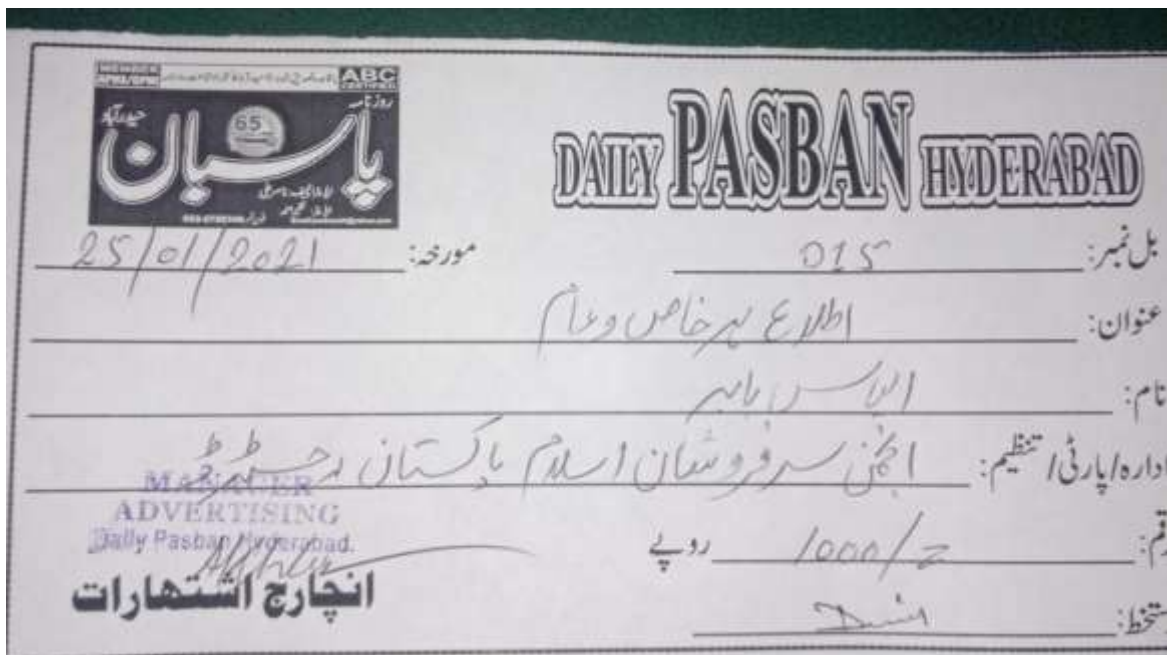 ABC
روزنامہ
پاسبان
حیدرآباد
65
DAILY PASBAN HYDERABAD
بل نمبر: 015
مورخہ: 25/01/2021
عنوان: اطلاع ہر خاص و عام
نام: الیاس بابر
ادارہ/پارٹی/تنظیم: انجمن سرفروشان اسلام پاکستان رجسٹرڈ
رقم: 1000/= روپے
MANAGER
ADVERTISING
Daily Pasban Hyderabad.
دستخط:
انچارج اشتہارات